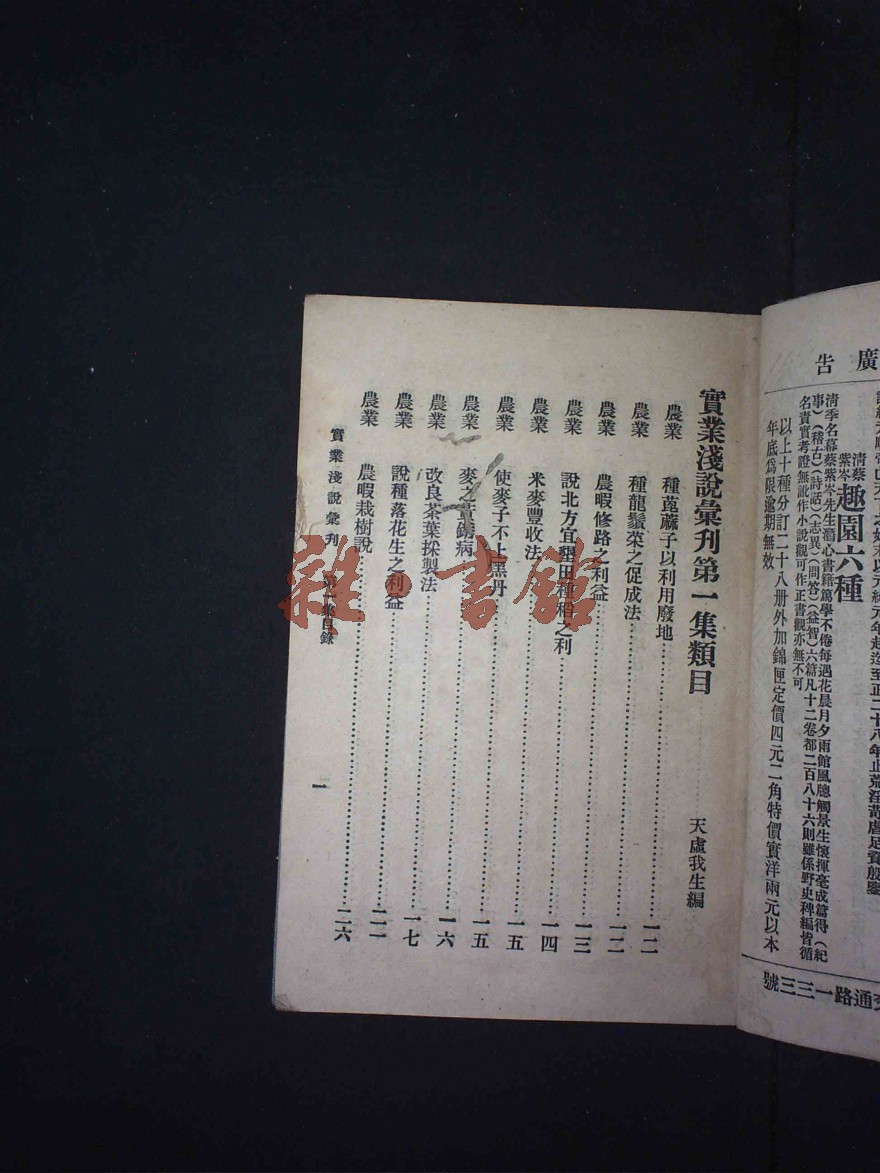 廣告
清蔡紫岑 趣園六種
清季名幕蔡紫岑先生潛心書籍篤學不倦每遇花晨月夕雨館風牕觸景生懷揮毫成篇得(紀
事)(稽古)(詩話)(志異)(問答)(益智)六篇凡十二卷都二百八十六則雖係野史稗編皆循
名責實考證無訛作小說觀可作正書觀亦無不可
以上十種分訂二十八册外加錦匣定價四元二角特價實洋兩元以本
年底爲限逾期無效
交通路一三三號
實業淺說彙刊第一集類目
天虛我生編
農業 種蓖蔴子以利用廢地 一二
農業 種龍鬚菜之促成法 一二
農業 農暇修路之利益 一三
農業 說北方宜墾田種稻之利 一四
農業 米麥豐收法 一五
農業 使麥子不上黑丹 一五
農業 麥之黃銹病 一六
農業 改良茶葉採製法 一七
農業 說種落花生之利益
農業 農暇栽樹說 二六
實業淺說彙刊 第一集目錄 一
雜·書館